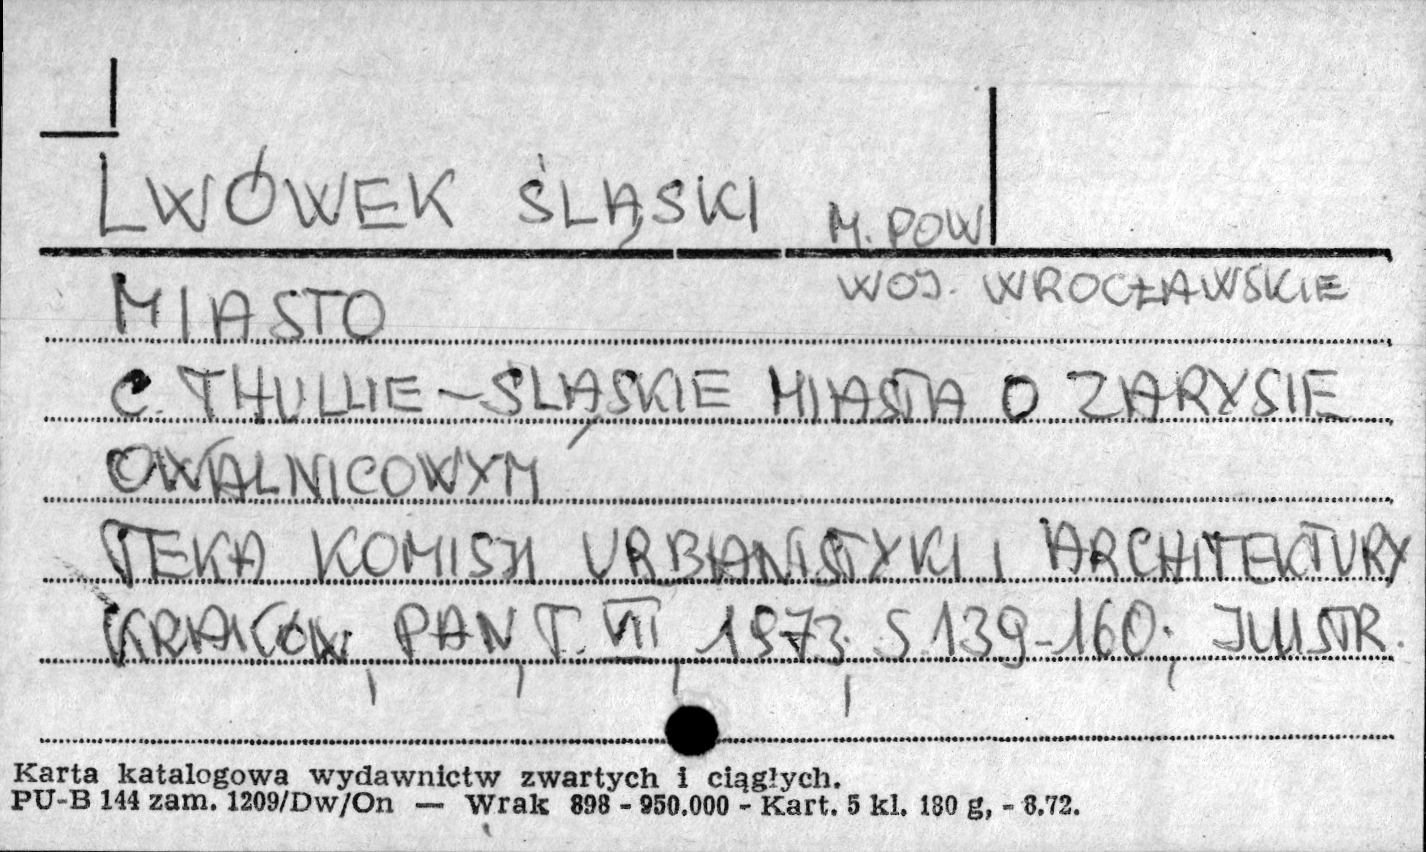 LWÓWEK ŚLĄSKI M. POW
WOJ. WROCŁAWSKIE
MIASTO
C. THULLIE – ŚLĄSKIE MIASTA O ZARYSIE
OWALNICOWYM
TEKA KOMISJI URBANISTYKI I ARCHITEKTURY
KRAKÓW, PAN, T. VII, 1973, S. 139-160, ILUSTR.
Karta katalogowa wydawnictw zwartych i ciągłych.
PU-B 144 zam. 1209/Dw/On — Wrak 898 - 950.000 - Kart. 5 kl. 180 g, - 8.72.